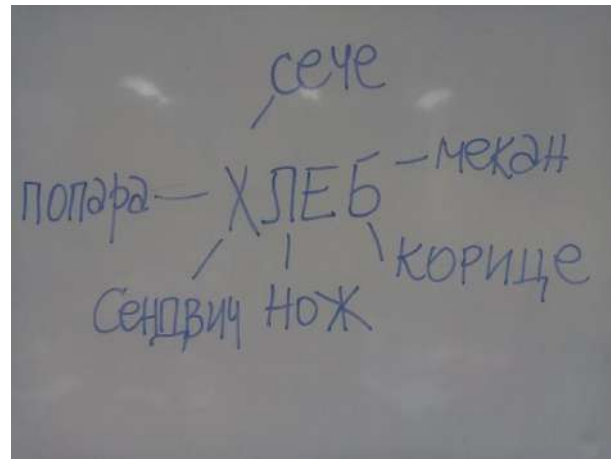 сече
попара ХЛЕБ мекан
Сендвич НОЖ КОРИЦЕ